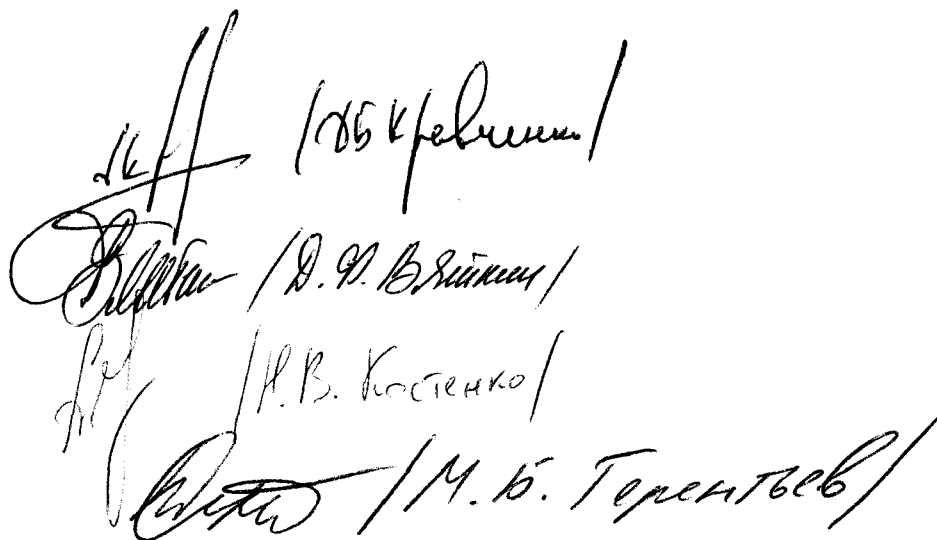 /ДБ Кравченко/
/Д.Ф. Вяткин/
/Н.В. Костенко/
/М.Б. Терентьев/